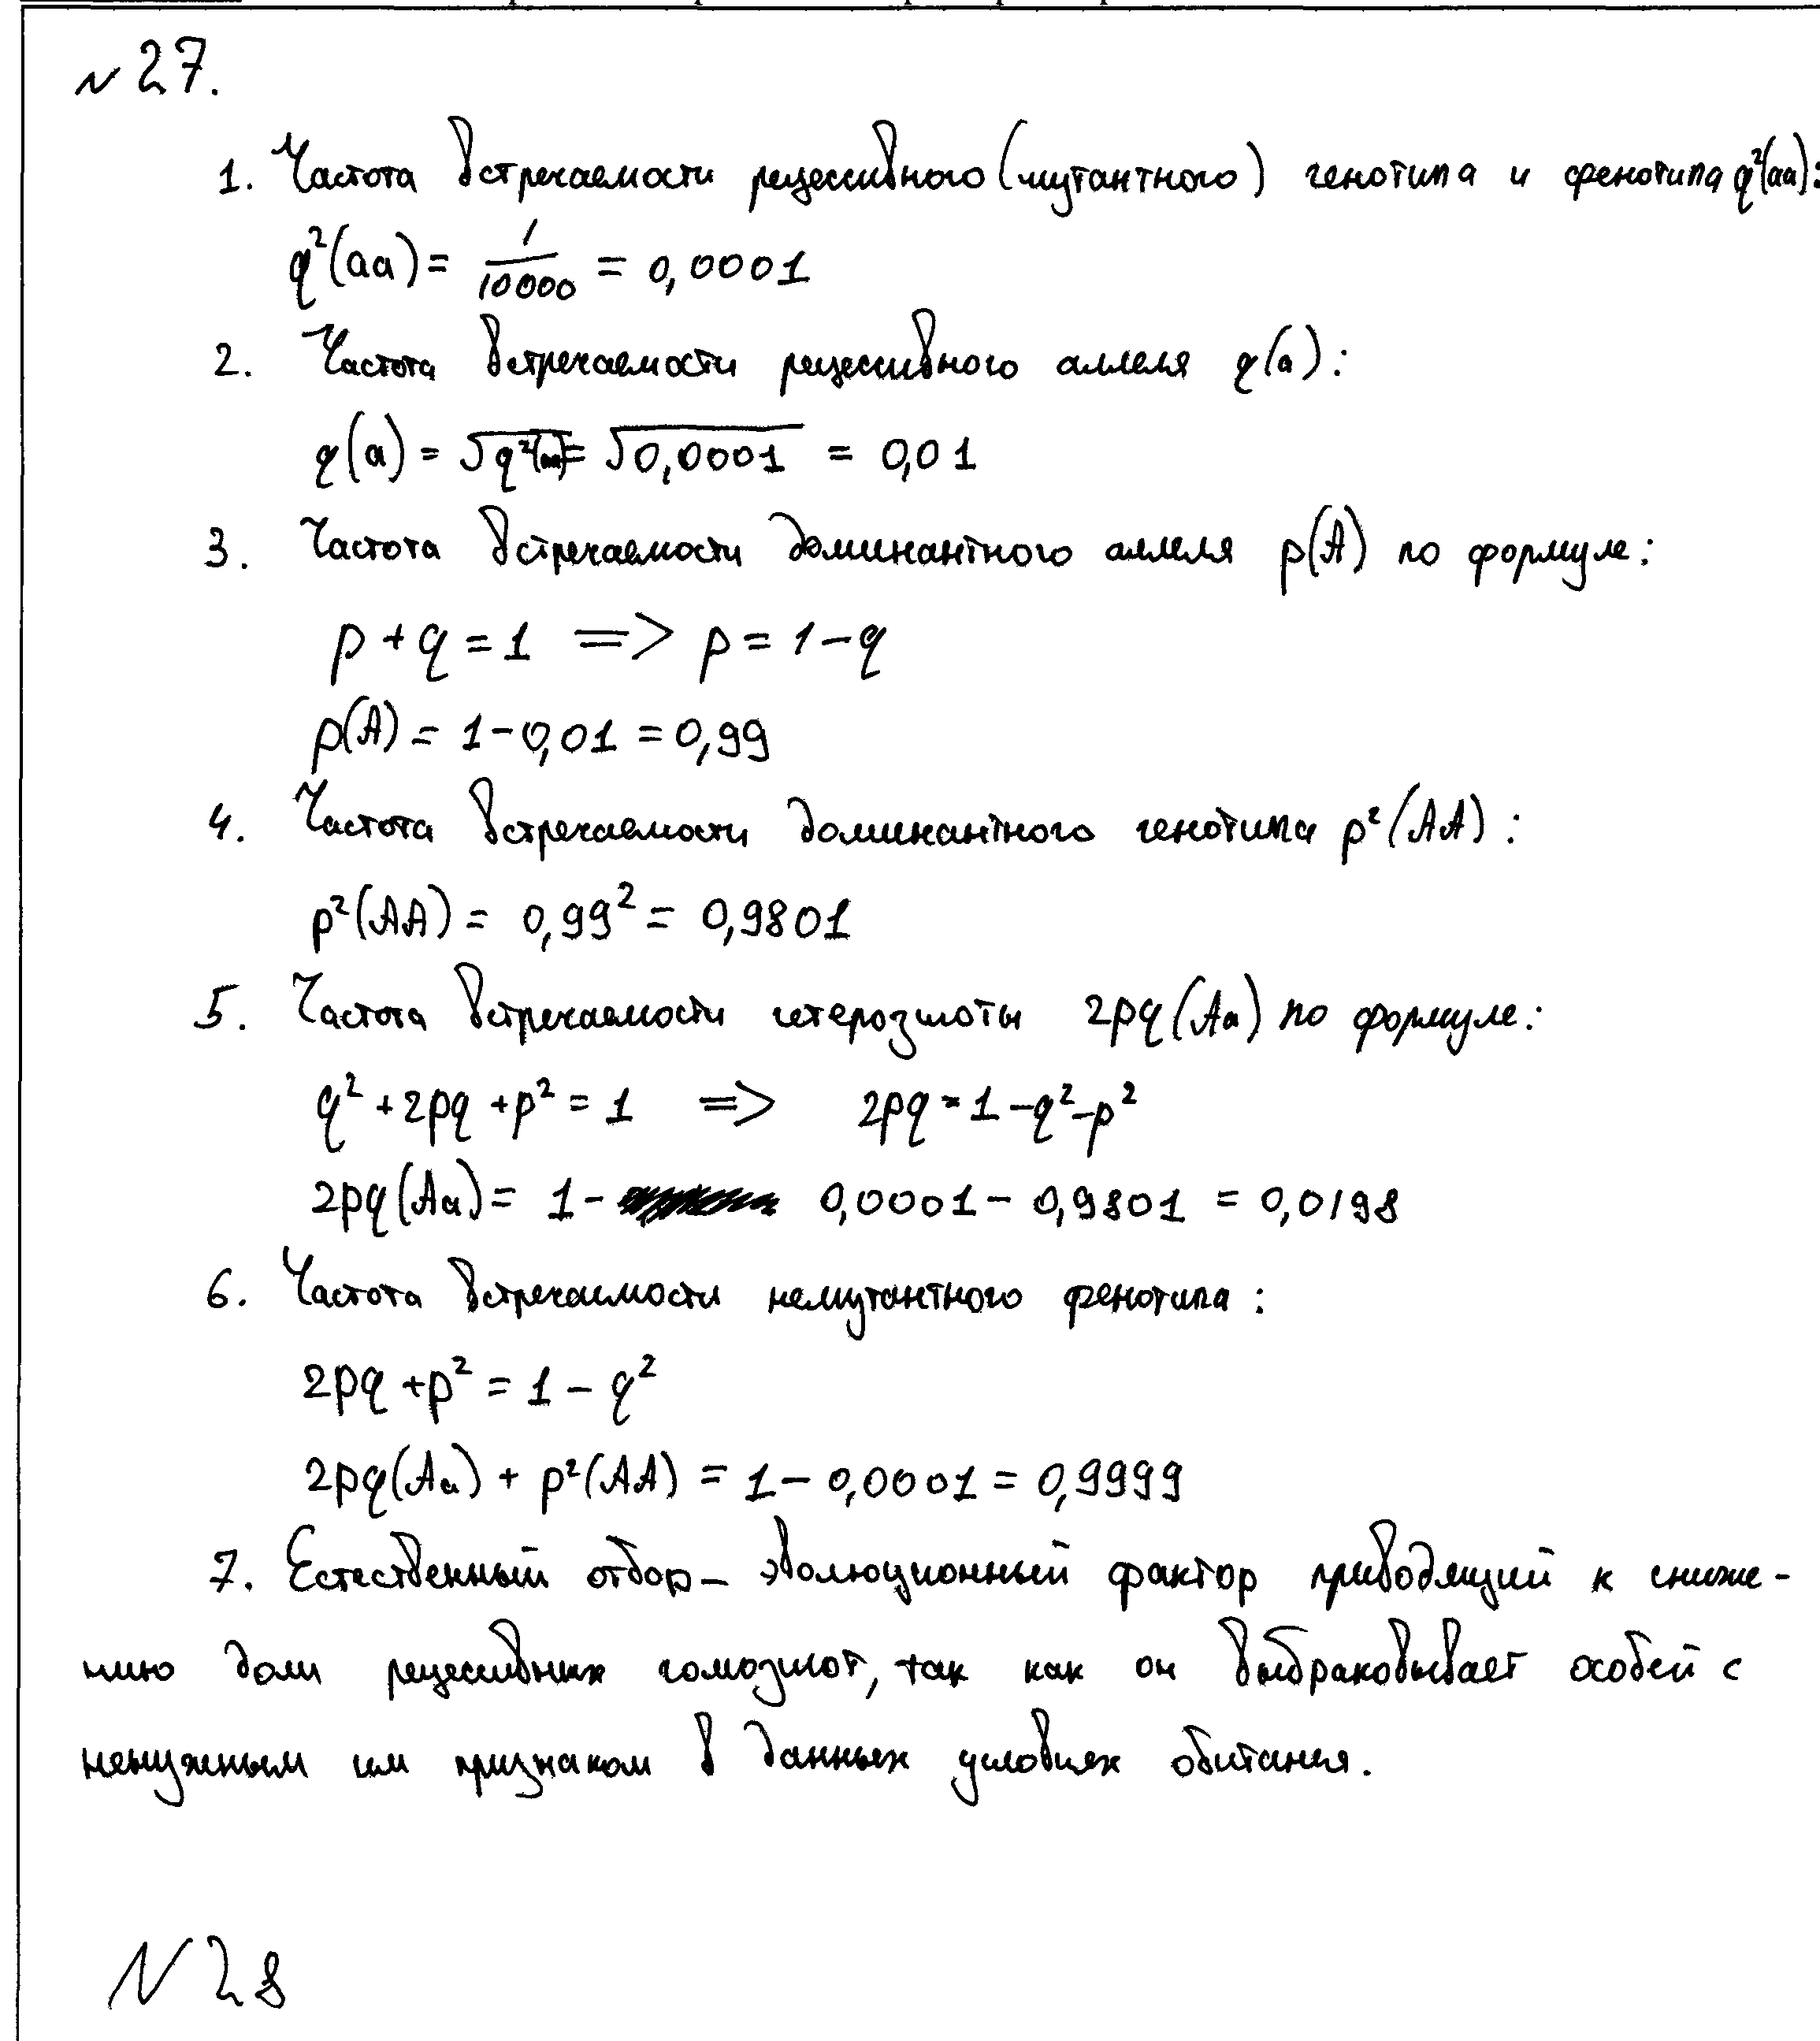 №27.
1. Частота встречаемости рецессивного (мутантного) генотипа и фенотипа q²(aa):
q²(aa) = 1/10000 = 0,0001
2. Частота встречаемости рецессивного аллеля q(a):
q(a) = √q²(aa) = √0,0001 = 0,01
3. Частота встречаемости доминантного аллеля p(A) по формуле:
p + q = 1 => p = 1 – q
p(A) = 1 – 0,01 = 0,99
4. Частота встречаемости доминантного генотипа p²(AA):
p²(AA) = 0,99² = 0,9801
5. Частота встречаемости гетерозиготы 2pq(Aa) по формуле:
q² + 2pq + p² = 1 => 2pq = 1 – q² – p²
2pq(Aa) = 1 – 0,0001 – 0,9801 = 0,0198
6. Частота встречаемости немутантного фенотипа:
2pq + p² = 1 – q²
2pq(Aa) + p²(AA) = 1 – 0,0001 = 0,9999
7. Естественный отбор – эволюционный фактор приводящий к сниже-
нию доли рецессивных гомозигот, так как он выбраковывает особей с
ненужным им признаком в данных условиях обитания.
№28